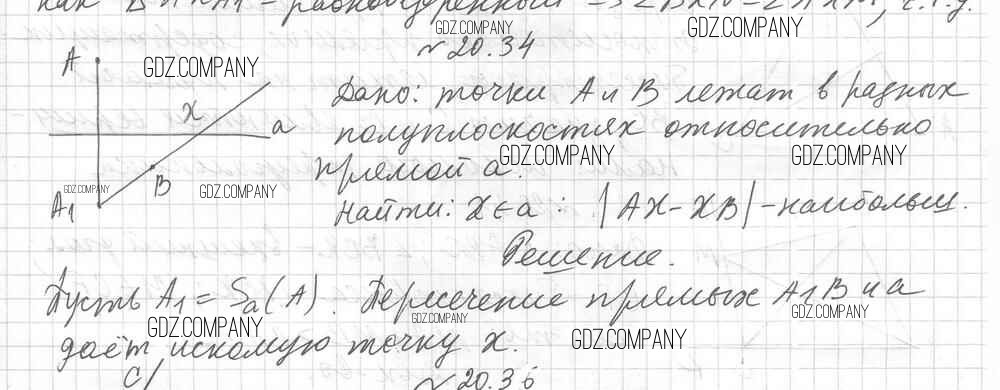 как Δ
№ 20.34
A
X
a
Дано: точки A и B лежат в разных
полуплоскостях относительно
прямой a.
B
A₁
Найти: X ∈ a : |AX - XB| - наибольш.
Решение.
Пусть A₁ = Sₐ(A). Пересечение прямых A₁B и a
даёт искомую точку X.
№ 20.36
GDZ.COMPANY
GDZ.COMPANY
GDZ.COMPANY
GDZ.COMPANY
GDZ.COMPANY
GDZ.COMPANY
GDZ.COMPANY
GDZ.COMPANY
GDZ.COMPANY
GDZ.COMPANY
GDZ.COMPANY